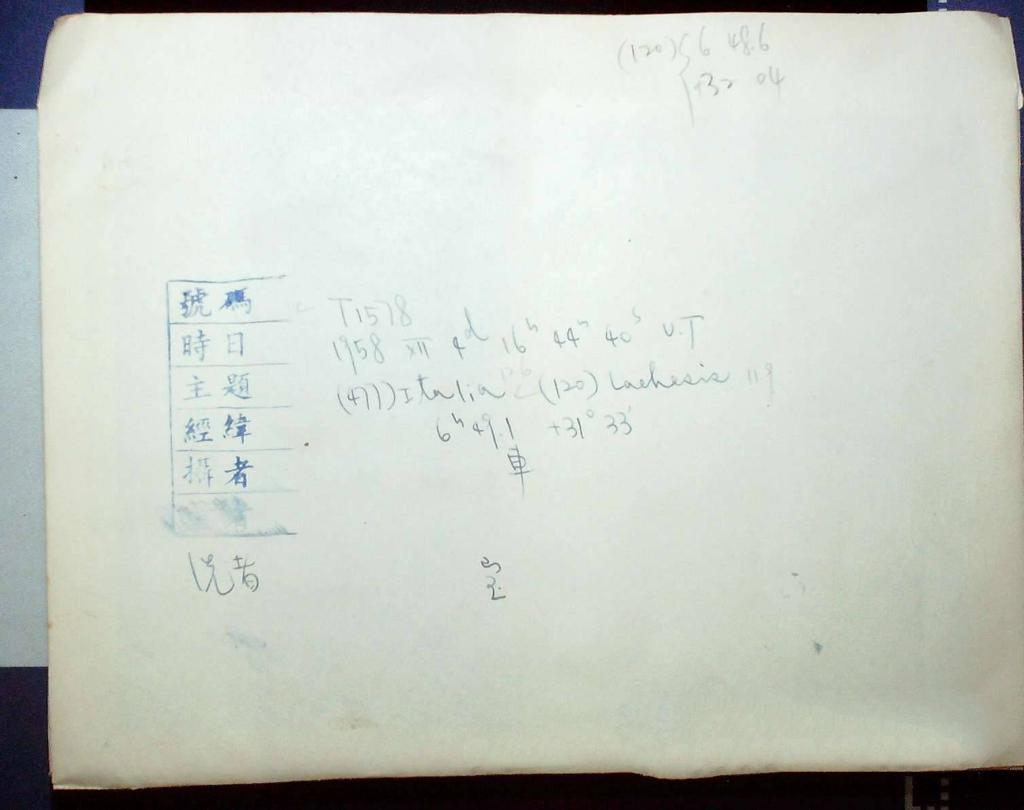 (120) { 6 48.6
+32 04
號碼 T1578
時日 1958 XII 4d 16h 44m 40s U.T
主題 (477) Italia (120) Lachesis 119
經緯 6h 49.1 +31° 33'
攝者 車
洗者